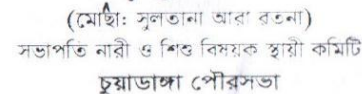 (মোছাঃ সুলতানা আরা রতনা)
সভাপতি নারী ও শিশু বিষয়ক স্থায়ী কমিটি
চুয়াডাঙ্গা পৌরসভা